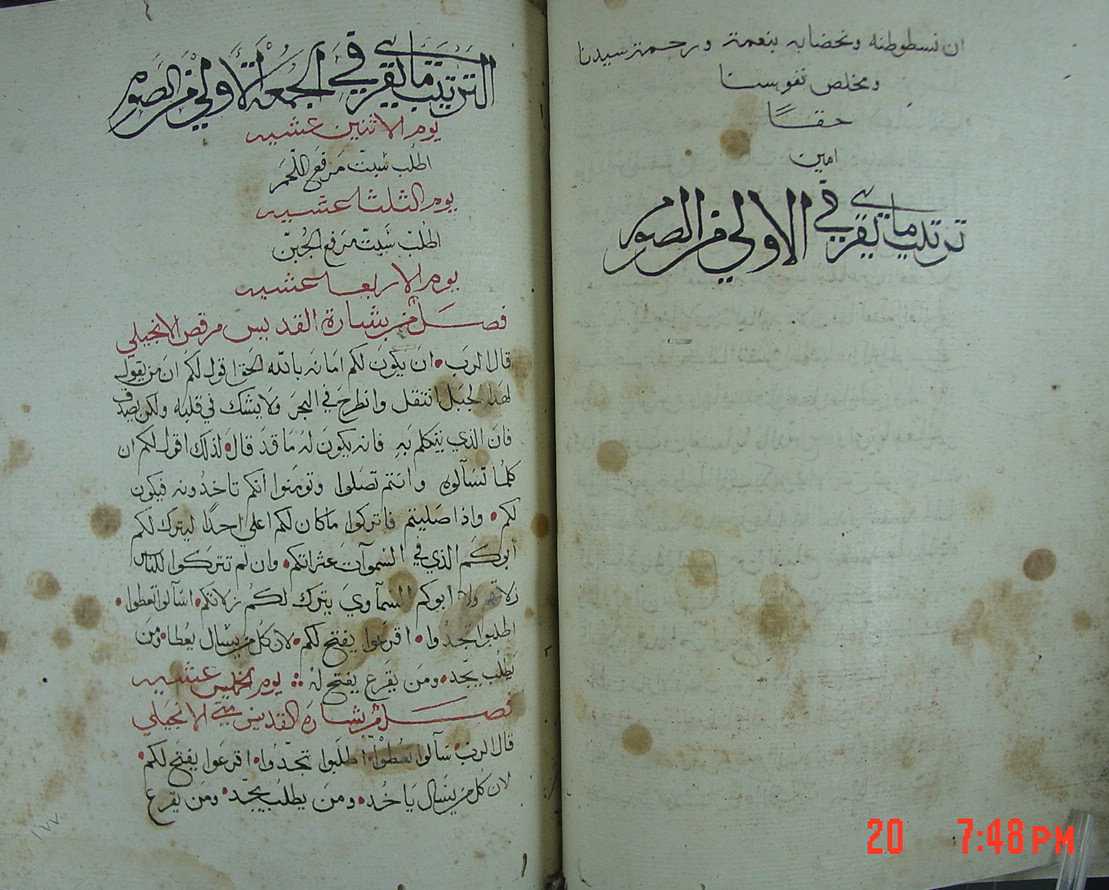 ان نسطوطنه ونحضابه بنعمة ورحمة سيدنا
ومخلص نفوسنا
حقا
امين
ترتيب ما يقري في الاولي من الصوم
الترتيب ما يقري في الجمعة الاولي من الصوم
يوم الاثنين عشيه
اطلب سبت مرفع اللحم
يوم الثلثا عشيه
اطلب سبت مرفع الجبن
يوم الاربعا عشيه
فصل من بشارة القديس مرقص الانجيلي
قال الرب ان يكون لكم امانه بالله الحق اقول لكم ان من يقول
لهذا الجبل انتقل وانطرح في البحر ولا يشك في قلبه ولكن يصدق
فان الذي يتكلم به فانه يكون له ما قد قال لذلك اقول لكم ان
كلما تسآلوه وانتم تصلوا وتومنوا انكم تاخذونه فيكون
لكم واذا صليتم فاتركوا ما كان لكم اعلي احدا ليترك لكم
ابوكم الذي في السموات عثراتكم وان لم تتركوا للناس
زلاتهم ولا ابوكم السماوي يترك لكم زلاتكم اسآلوا تعطوا
اطلبوا تجدوا اقرعوا يفتح لكم لان كل من يسال يعطا ومن
يطلب يجد ومن يقرع يفتح له يوم الخميس عشيه
فصل من بشارة القديس متي الانجيلي
قال الرب سآلوا تعطوا اطلبوا تجدوا اقرعوا يفتح لكم
لان كل من يسال ياخد ومن يطلب يجد ومن يقرع
١٧٧
20 7:48 PM